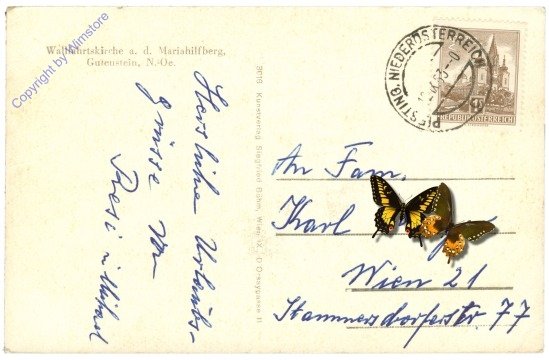 Copyright by Wimstore
Wallfahrtskirche a. d. Mariahilfberg,
Gutenstein, N.-Oe.
Herzliche Urlaubs-
grüsse Ihr
Resi
3616 Kunstverlag Siegfried Böhm, Wien, IX.
PIESTING, NIEDERÖSTERREICH
REPUBLIK ÖSTERREICH
An Fam.
Karl
Wien 21
Stammersdorferstr 77